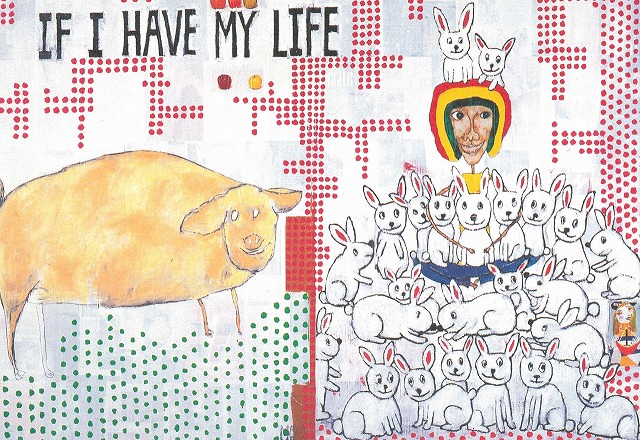 IF I HAVE MY LIFE